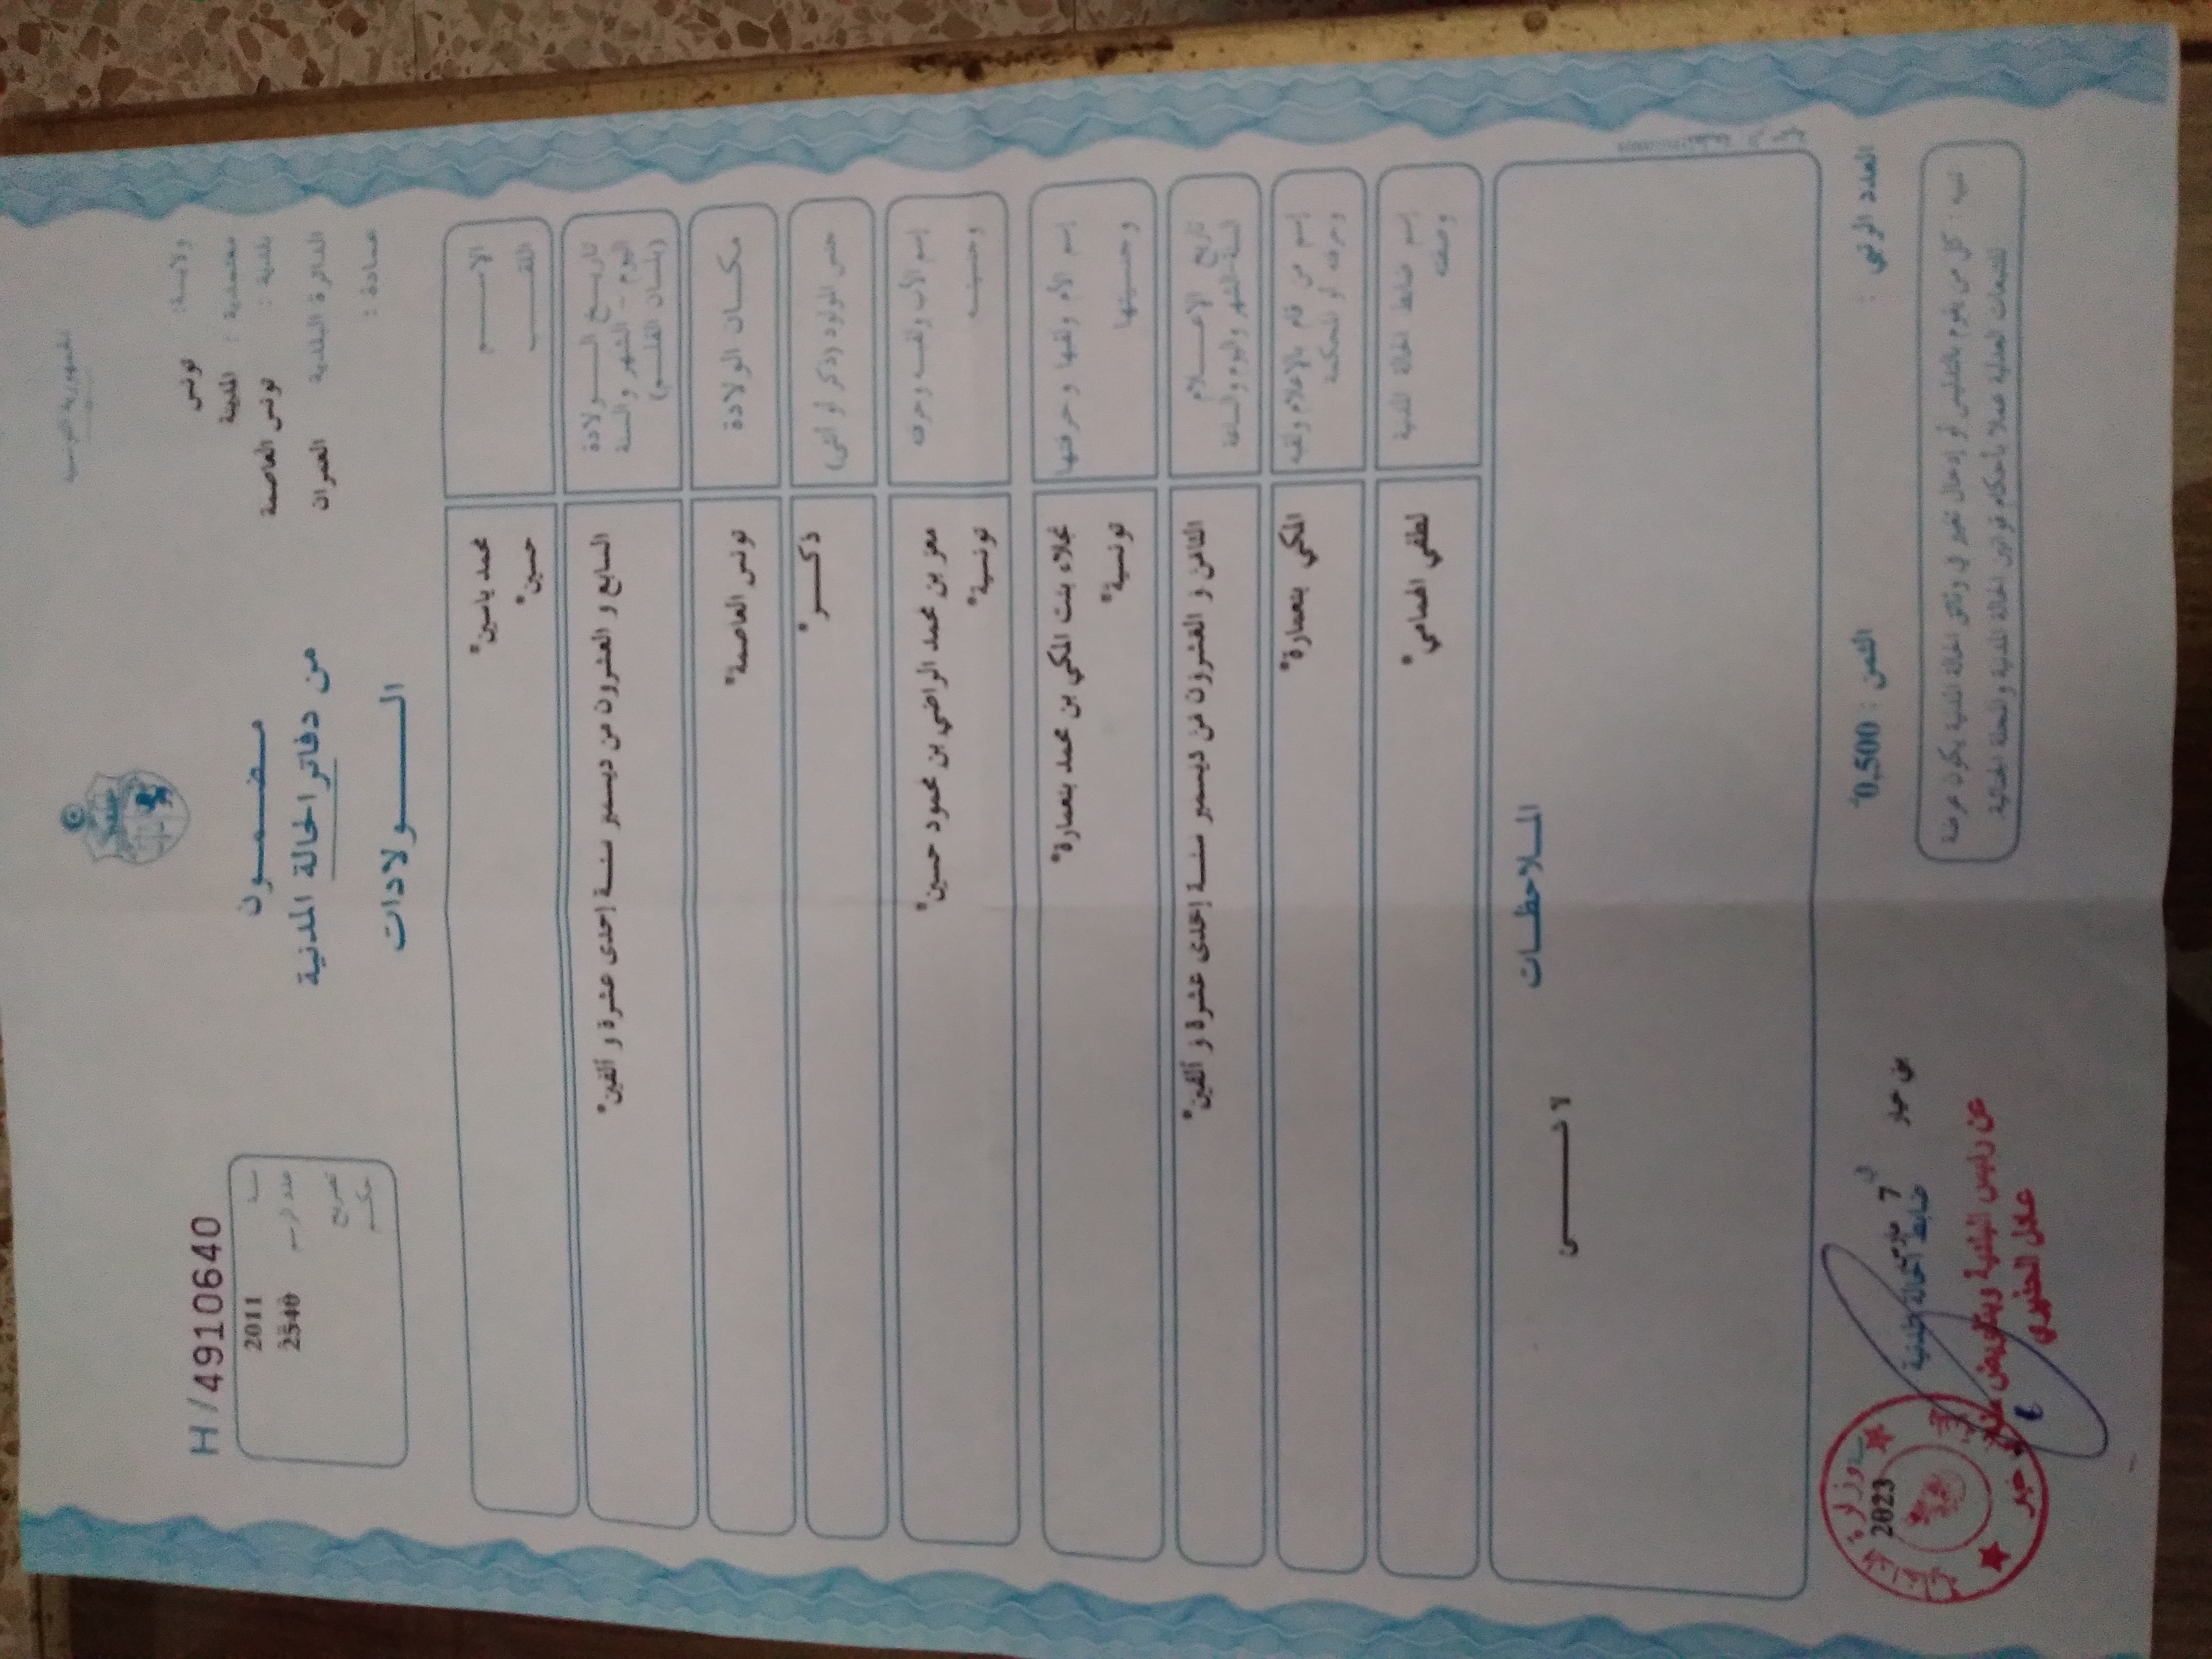 الجمهورية التونسية
ولاية: تونس
معتمدية: المدينة
بلدية: تونس العاصمة
الدائرة البلدية العمران
عمادة:
مضمون
من دفاتر الحالة المدنية
الولادات
H/4910640
سنة 2011
عدد الرسم 2540
تصريح
حكم
الاسم محمد ياسين*
اللقب حسين*
تاريخ الولادة
اليوم - الشهر والسنة
(بلسان القلم)
السابع و العشرون من ديسمبر سنة إحدى عشرة و ألفين*
مكان الولادة تونس العاصمة*
جنس المولود (ذكر أو أنثى) ذكر*
إسم الأب ولقبه وحرفته معز بن محمد الراضي بن محمود حسين*
وجنسيته تونسية*
إسم الأم ولقبها وحرفتها نجلاء بنت المكي بن محمد بنعمارة*
وجنسيتها تونسية*
تاريخ الإعلام
السنة والشهر واليوم والساعة
الثامن و العشرون من ديسمبر سنة إحدى عشرة و ألفين*
إسم من قام بالإعلام ولقبه المكي بنعمارة*
وحرفته أو المحكمة
إسم ضابط الحالة المدنية لطفي الحمامي*
وصفته
الملاحظات
لا شئ
العدد الرتبي :
الثمن : 0,500
بن خيار في 7 مارس 2023
ضابط الحالة المدنية
عن رئيس البلدية وبتفويض منه
تنبيه : كل من يقوم بالتدليس أو إدخال تغيير في وثائق الحالة المدنية يكون عرضة
للتتبعات العدلية عملا بأحكام قوانين الحالة المدنية والمجلة الجنائية